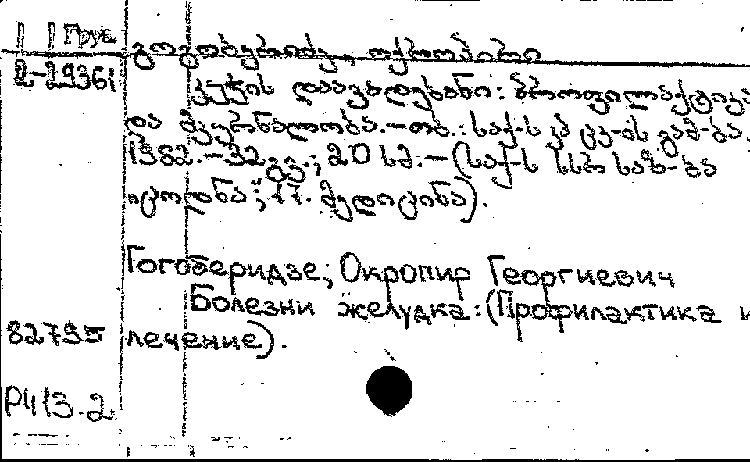 Груз
გოგობერიძე, ოქროპირი
2-29361
კუჭის დაავადებანი: პროფილაქტიკა
და მკურნალობა.-თბ.: საქ-ს კპ ცკ-ის გამ-ბა,
1982.-32 გვ.; 20 სმ.-(საქ-ს სსრ საზ-ბა
„ცოდნა"; 11. მედიცინა).
Гогоберидзе, Окропир Георгиевич
Болезни желудка: (Профилактика и
82795 лечение).
Р413.2